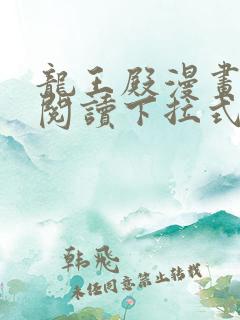 龍王殿漫畫
閱讀下拉式
韩飛
未经同意禁止转载